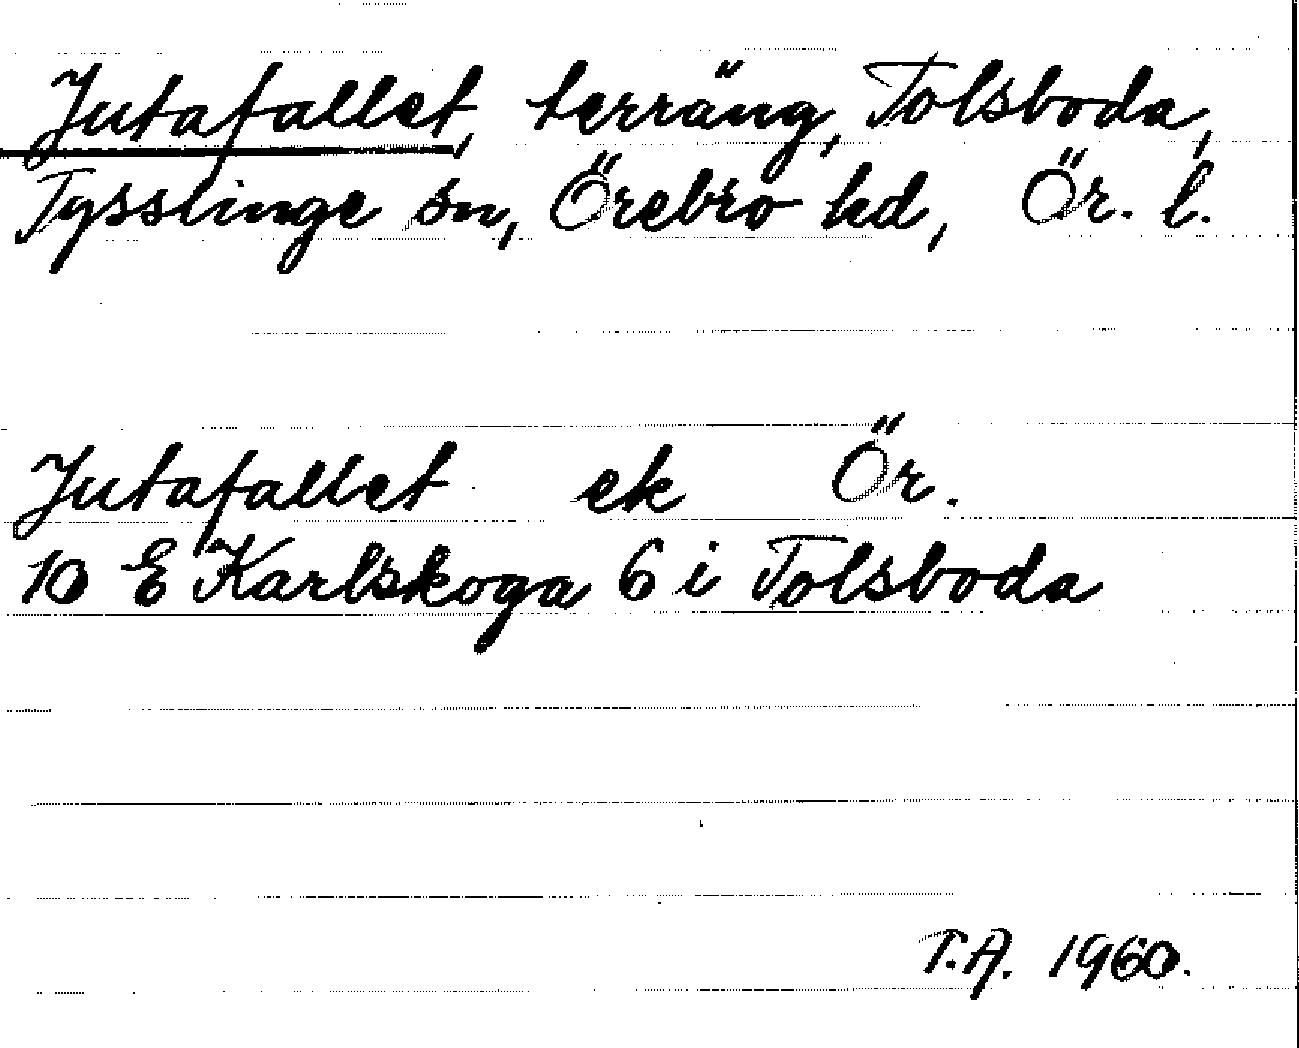 Jutafallet, terräng, Tolsboda,
Tysslinge sn, Örebro hd, Ör. l.
Jutafallet ek Ör.
10 E Karlskoga 6 i Tolsboda
T.A. 1960.